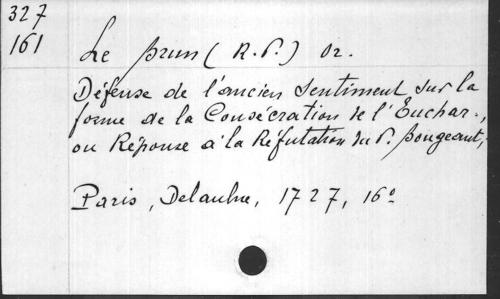 327
161
Le Brun (R.P.) Or.
Défense de l'ancien sentiment sur la
forme de la Consécration de l'Euchar.,
ou Réponse à la Réfutation du P. Bougeant,
Paris, Delaulne, 1727, 16º